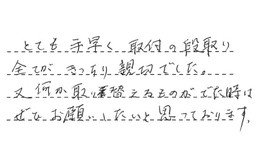 とても手早く取付の段取り
全てがきっちり親切でした。
又何か取り替えるものがでた時は
ぜひお願いしたいと思っております。